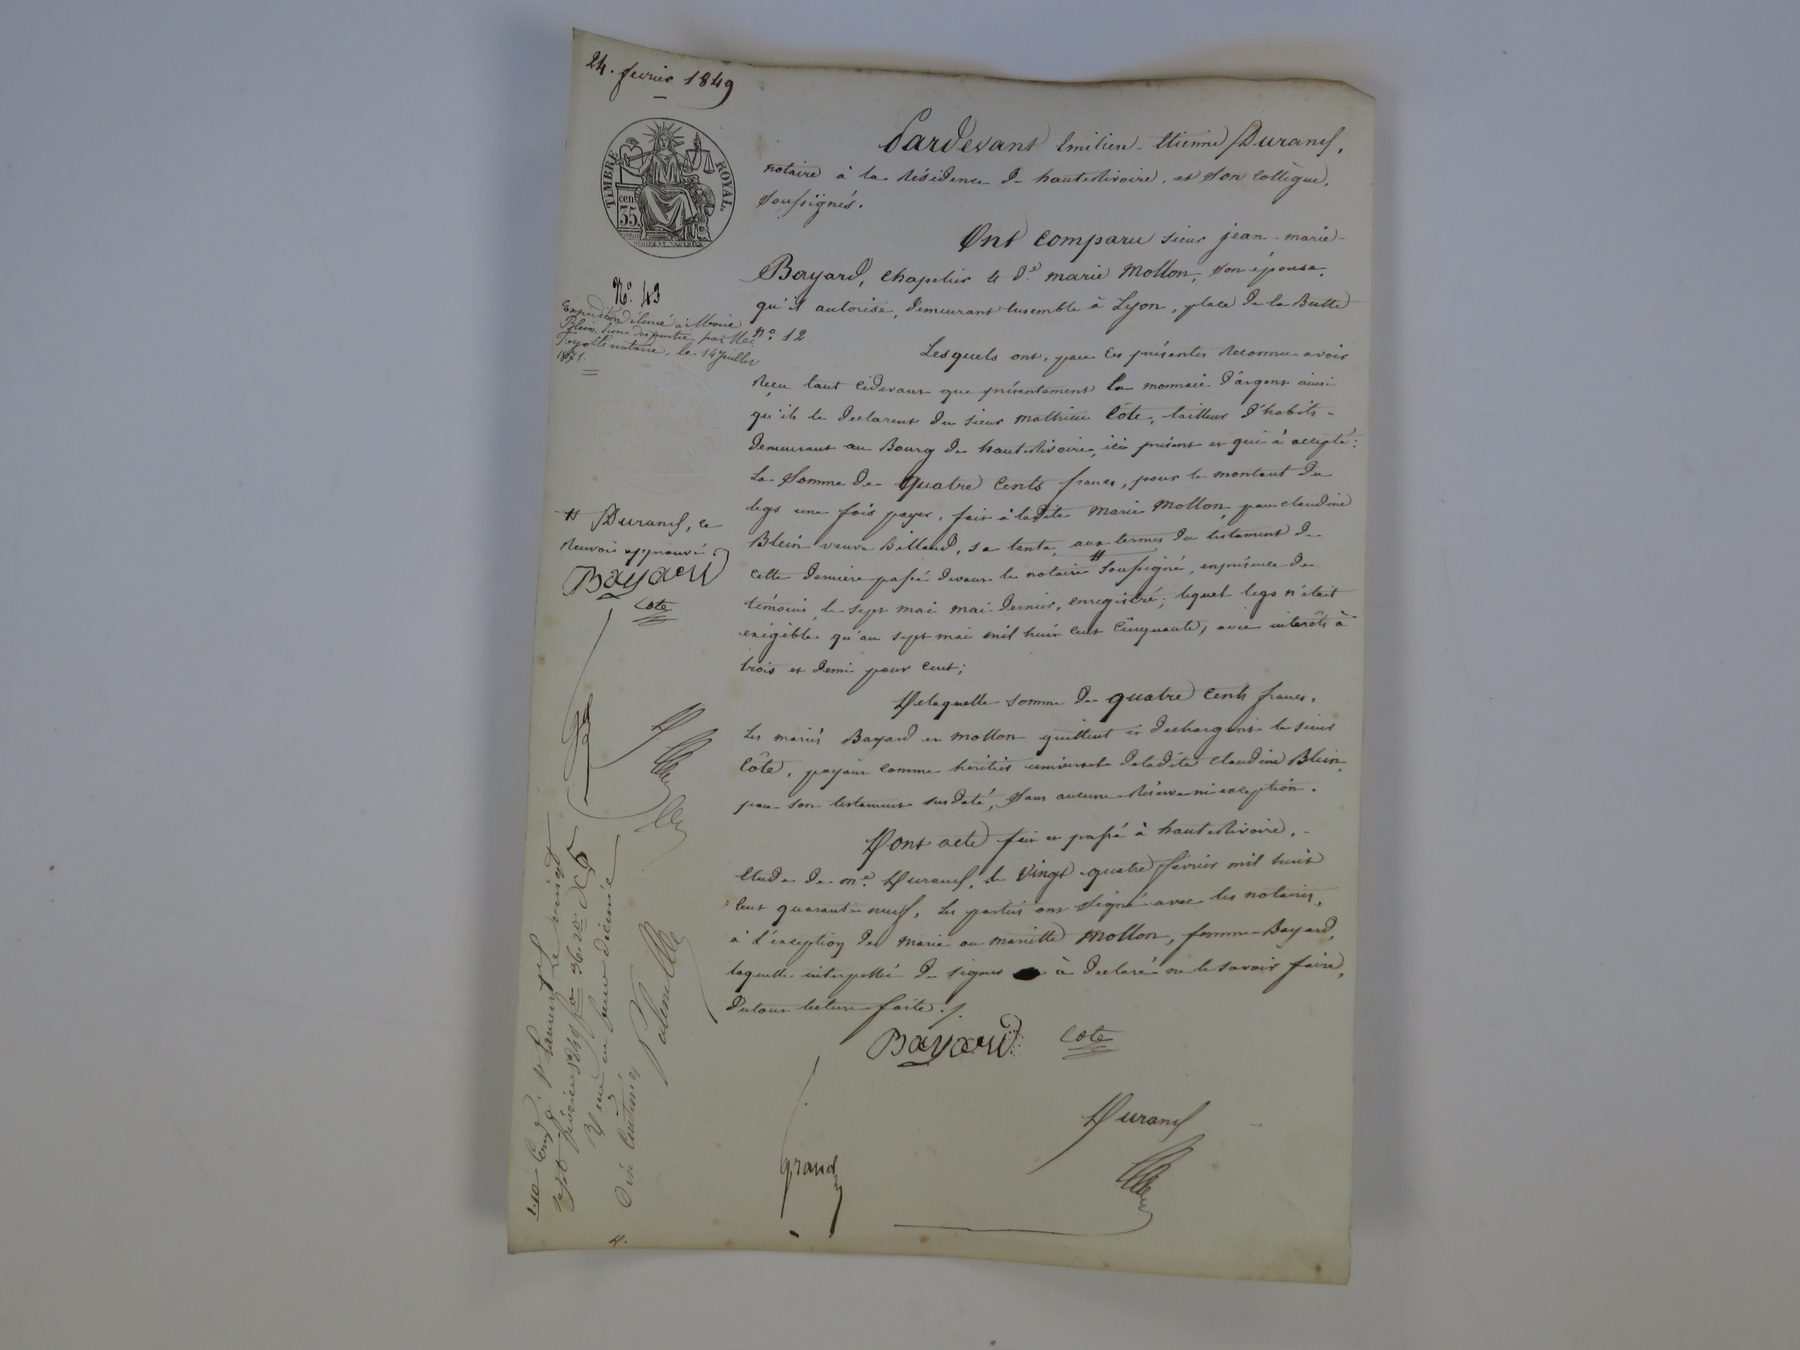 24. février 1849
TIMBRE ROYAL
cen.
35
Pardevant Emilien-Etienne Durand,
notaire à la résidence de hauterivoire, et son collègue,
soussignés.
Ont comparu sieur jean-marie
Bayard, chapelier & de. marie Mollon, son épouse,
qu'il autorise, demeurant ensemble à Lyon, place de la Butte
no. 12
Lesquels ont, par ces présentes reconnu avoir
reçu tant cidevant que présentement en monnaie d'argent ainsi
qu'ils le déclarent du sieur mathieu Côte, tailleur d'habits
demeurant au Bourg de hauterivoire, ici présent et qui a accepté:
La somme de quatre cents francs, pour le montant du
legs une fois payer, fait à ladite Marie Mollon, par claudine
Blein veuve Billaud, sa tante, aux termes du testament de
cette dernière passé devant le notaire # soussigné, en présence de
témoins, le sept mai mai dernier, enregistré; lequel legs n'était
exigible qu'au sept mai mil huit cent cinquante, avec intérêts à
trois et demi pour cent;
De laquelle somme de quatre cents francs,
Les mariés Bayard et Mollon quittent et déchargent le sieur
Côte, payant comme héritier universel de ladite claudine Blein,
par son testament susdaté, sans aucune réserve ni exception.
Dont acte fait et passé à hauterivoire,
étude de me. Durand, le vingt-quatre février mil huit
cent quarante-neuf, les parties ont signé avec les notaires,
à l'exception de marie ou mariette Mollon, femme Bayard,
laquelle interpellée de signer a déclaré ne le savoir faire,
du tout lecture faite./.
Bayard Cote
Durand
grand
No. 43
Expédition délivrée à Marie
Blein, l'une des parties, par Me.
notaire, le 14 juillet
1871.
# Durand, ce
renvoi approuvé
Bayard
Cote
1.10 Enreg. à St Laurent le vingt
sept février 1849 fo 36 vo c 5
Reçu un franc
dix centimes